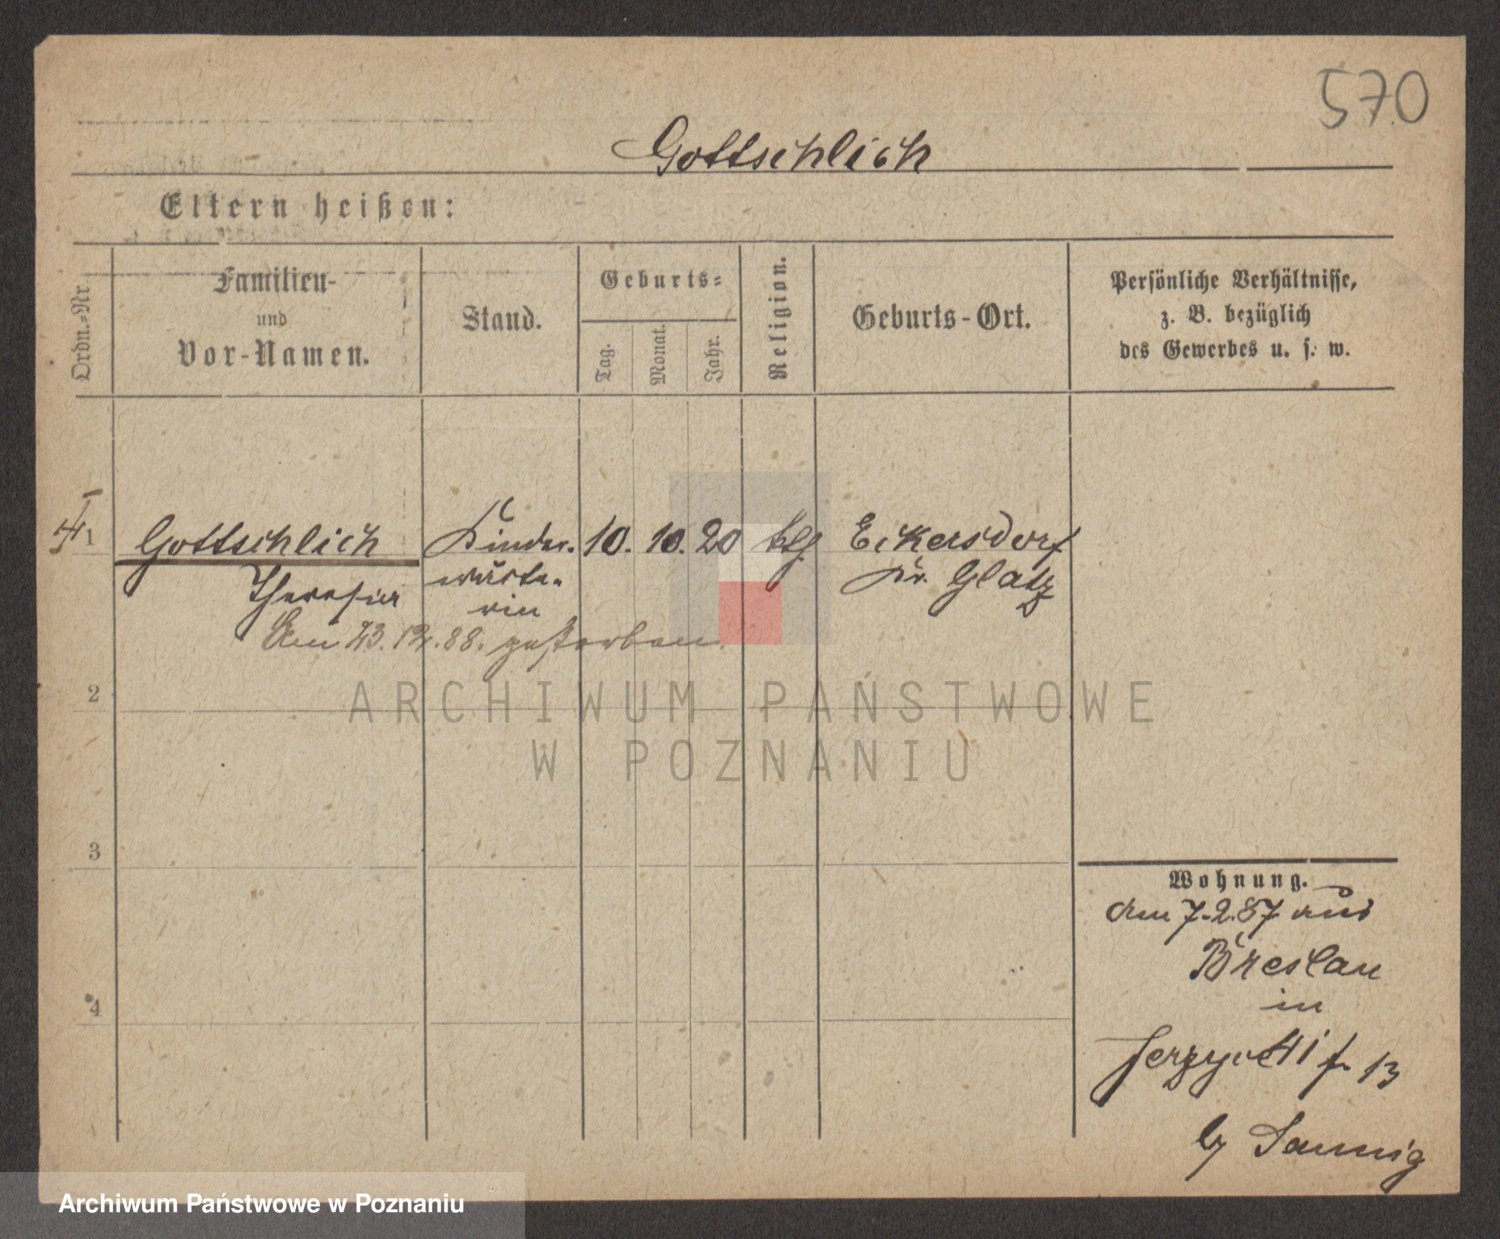 570
Gottschlich
Eltern heißen:
Ordn.-Nr.
Familien-
und
Vor-Namen.
Stand.
Geburts-
Tag.
Monat.
Jahr.
Religion.
Geburts-Ort.
Persönliche Verhältnisse,
z. B. bezüglich
des Gewerbes u. s. w.
1 Gottschlich Kinder- 10. 10. 20 ktl. Eckersdorf
Theresia wärte- Kr. Glatz
rin
Am 23.12.88. gestorben.
2
3
4
Wohnung.
Am 7.2.87 aus
Breslau
in
Jerzyce 41 f. 13
b/
ARCHIWUM PAŃSTWOWE
W POZNANIU
Archiwum Państwowe w Poznaniu